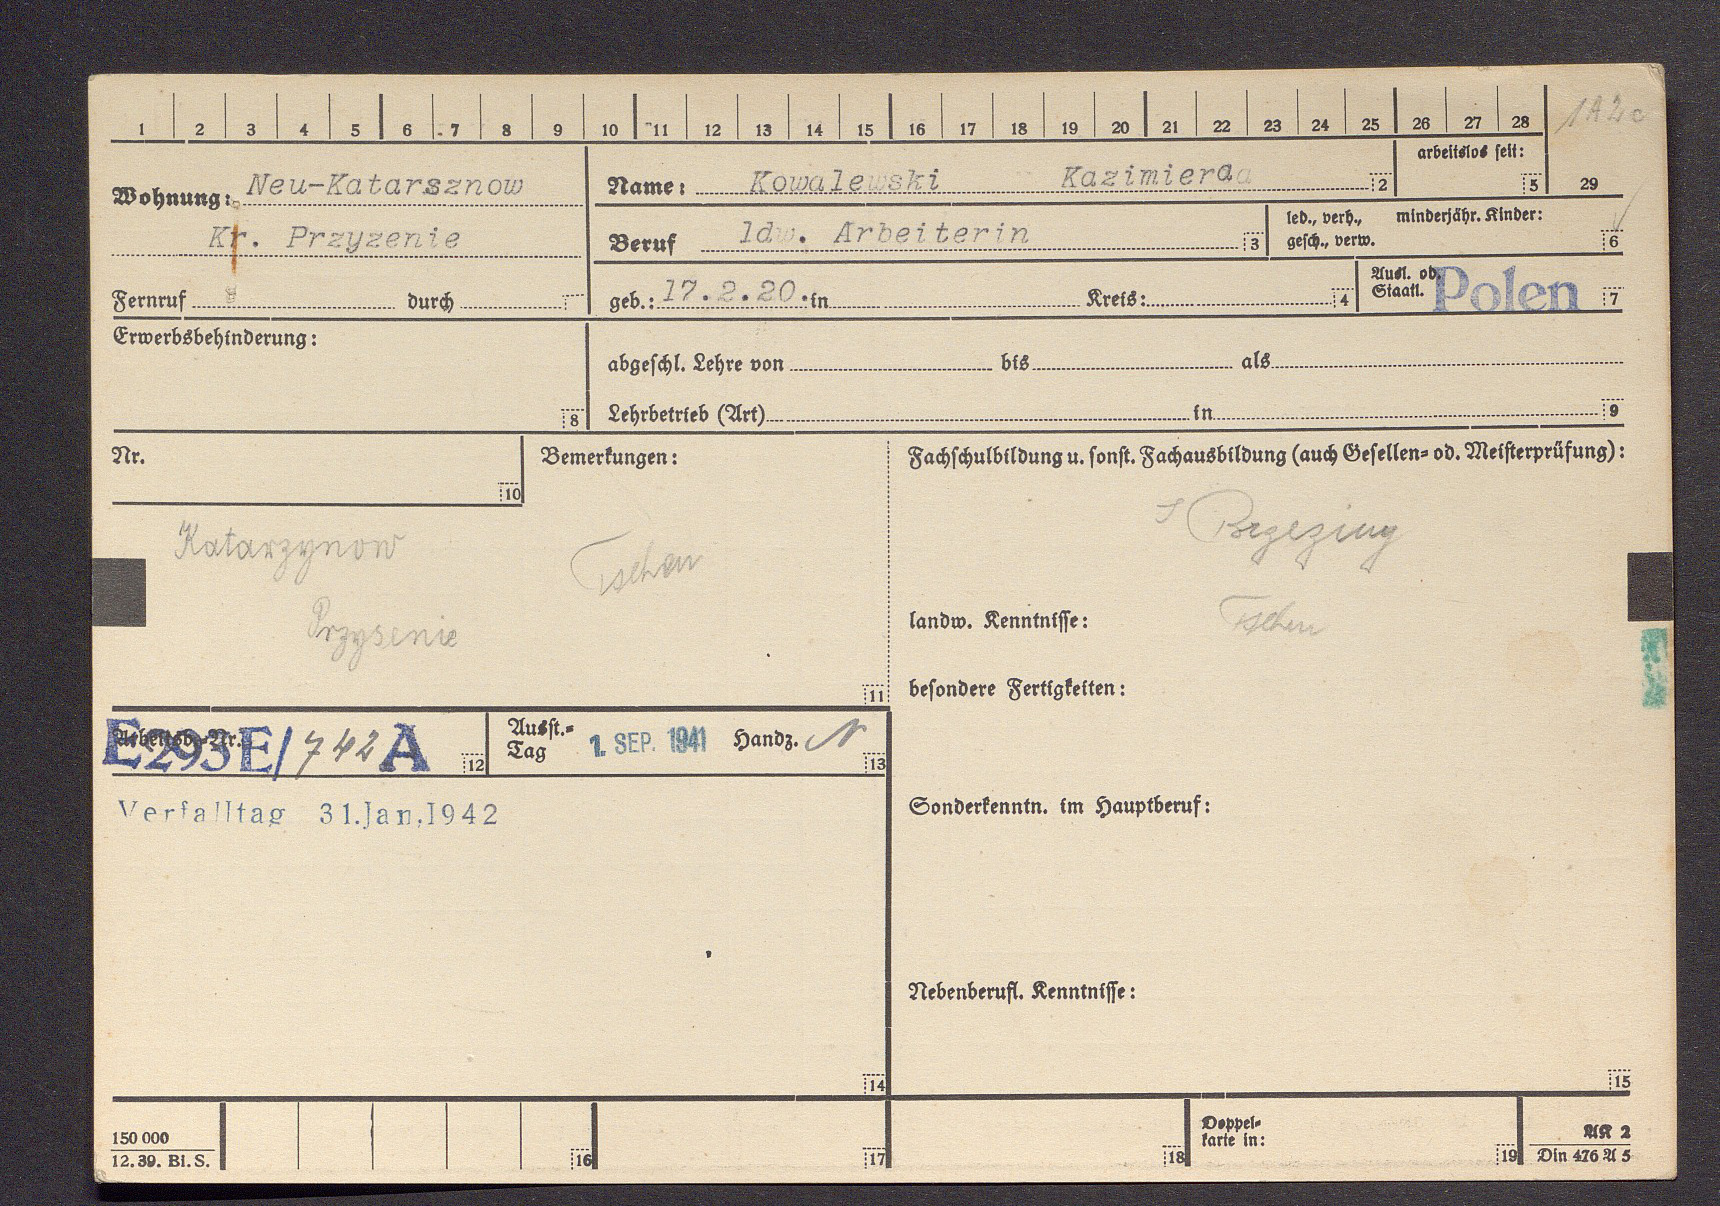 1 2 3 4 5 6 7 8 9 10 11 12 13 14 15 16 17 18 19 20 21 22 23 24 25 26 27 28 1A2c
arbeitslos seit:
Wohnung: Neu-Katarsznow
Name: Kowalewski Kazimiera 2
5 29
Kr. Przyzenie
Beruf ldw. Arbeiterin 3
led., verh., minderjähr. Kinder:
gesch., verw. 6
Fernruf durch
geb.: 17.2.20. in Kreis: 4
Ausl. od.
Staatl. Polen 7
Erwerbsbehinderung:
8
abgeschl. Lehre von bis als
Lehrbetrieb (Art) in 9
Nr.
10
Bemerkungen:
Fachschulbildung u. sonst. Fachausbildung (auch Gesellen- od. Meisterprüfung):
Katarzynow
Przysenie
11
landw. Kenntnisse:
besondere Fertigkeiten:
Arbeitsb.-Nr. E293E/742A 12
Ausst.-
Tag 1. SEP. 1941 Handz. 13
Verfalltag 31.Jan.1942
Sonderkenntn. im Hauptberuf:
Nebenberufl. Kenntnisse:
14
15
150 000
12. 39. Bl. S.
16 17 18
Doppel-
karte in: 19
AK 2
Din 476 A 5